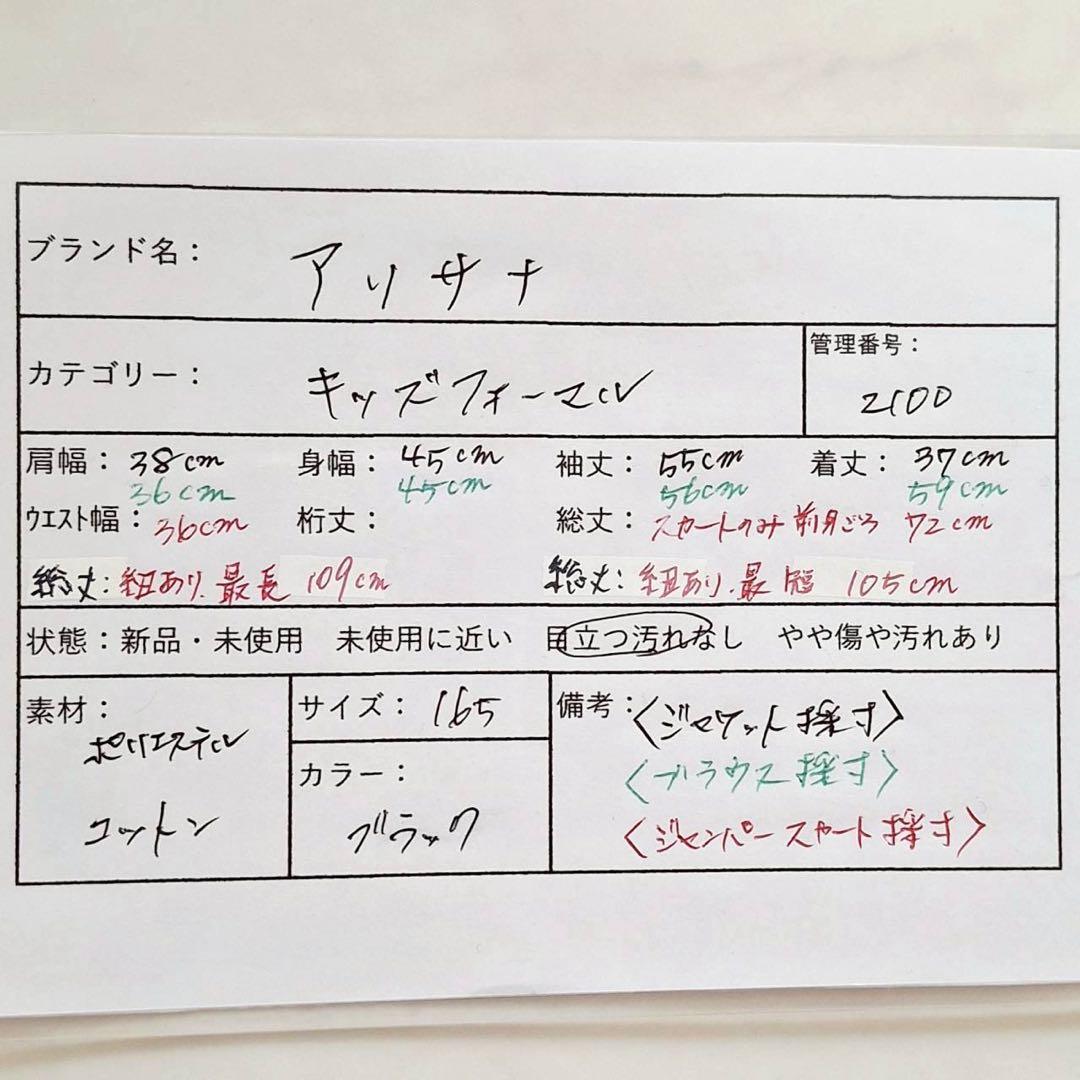 ブランド名： アリサナ
カテゴリー： キッズフォーマル
管理番号：
2100
肩幅：38cm 身幅：45cm 袖丈：55cm 着丈：37cm
36cm 45cm 56cm 59cm
ウエスト幅：36cm 裄丈： 総丈：スカートのみ 前身ごろ 72cm
総丈：紐あり.最長 109cm 総丈：紐あり.最短 105cm
状態：新品・未使用 未使用に近い 目立つ汚れなし やや傷や汚れあり
素材：
ポリエステル
コットン
サイズ：165
カラー：
ブラック
備考：〈ジャケット採寸〉
〈ブラウス採寸〉
〈ジャンパースカート採寸〉